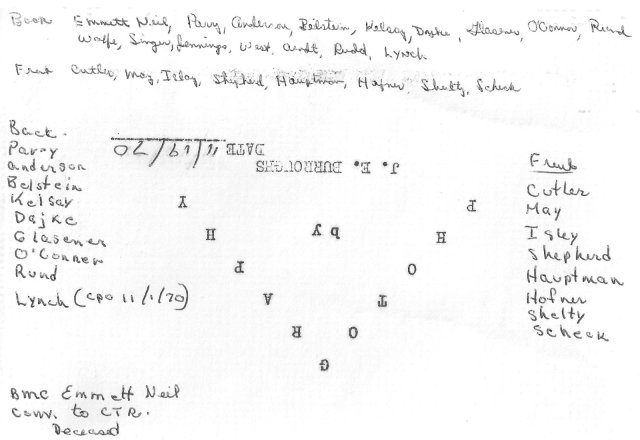 Back Emmett Neil, Parry, Anderson, Beilstein, Kelsay, Dajke, Glasener, O'Connor, Rund
Wolfe, Singer, Jennings, West, Arndt, Rudd, Lynch
Front Cutler, May, Isley, Shepherd, Hauptman, Hafner, Shelty, Scheck
Back.
Parry
Anderson
Belstein
Kelsay
Dajke
Glasener
O'Conner
Rund
Lynch (CPO 11/1/70)
BMC Emmett Neil
Conv. to CTR.
Deceased
Front
Cutler
May
Isley
Shepherd
Hauptman
Hofner
Shelty
Scheck
PHOTOGRAPHY
by
J. E. BURROUGHS
DATE 11/19/70